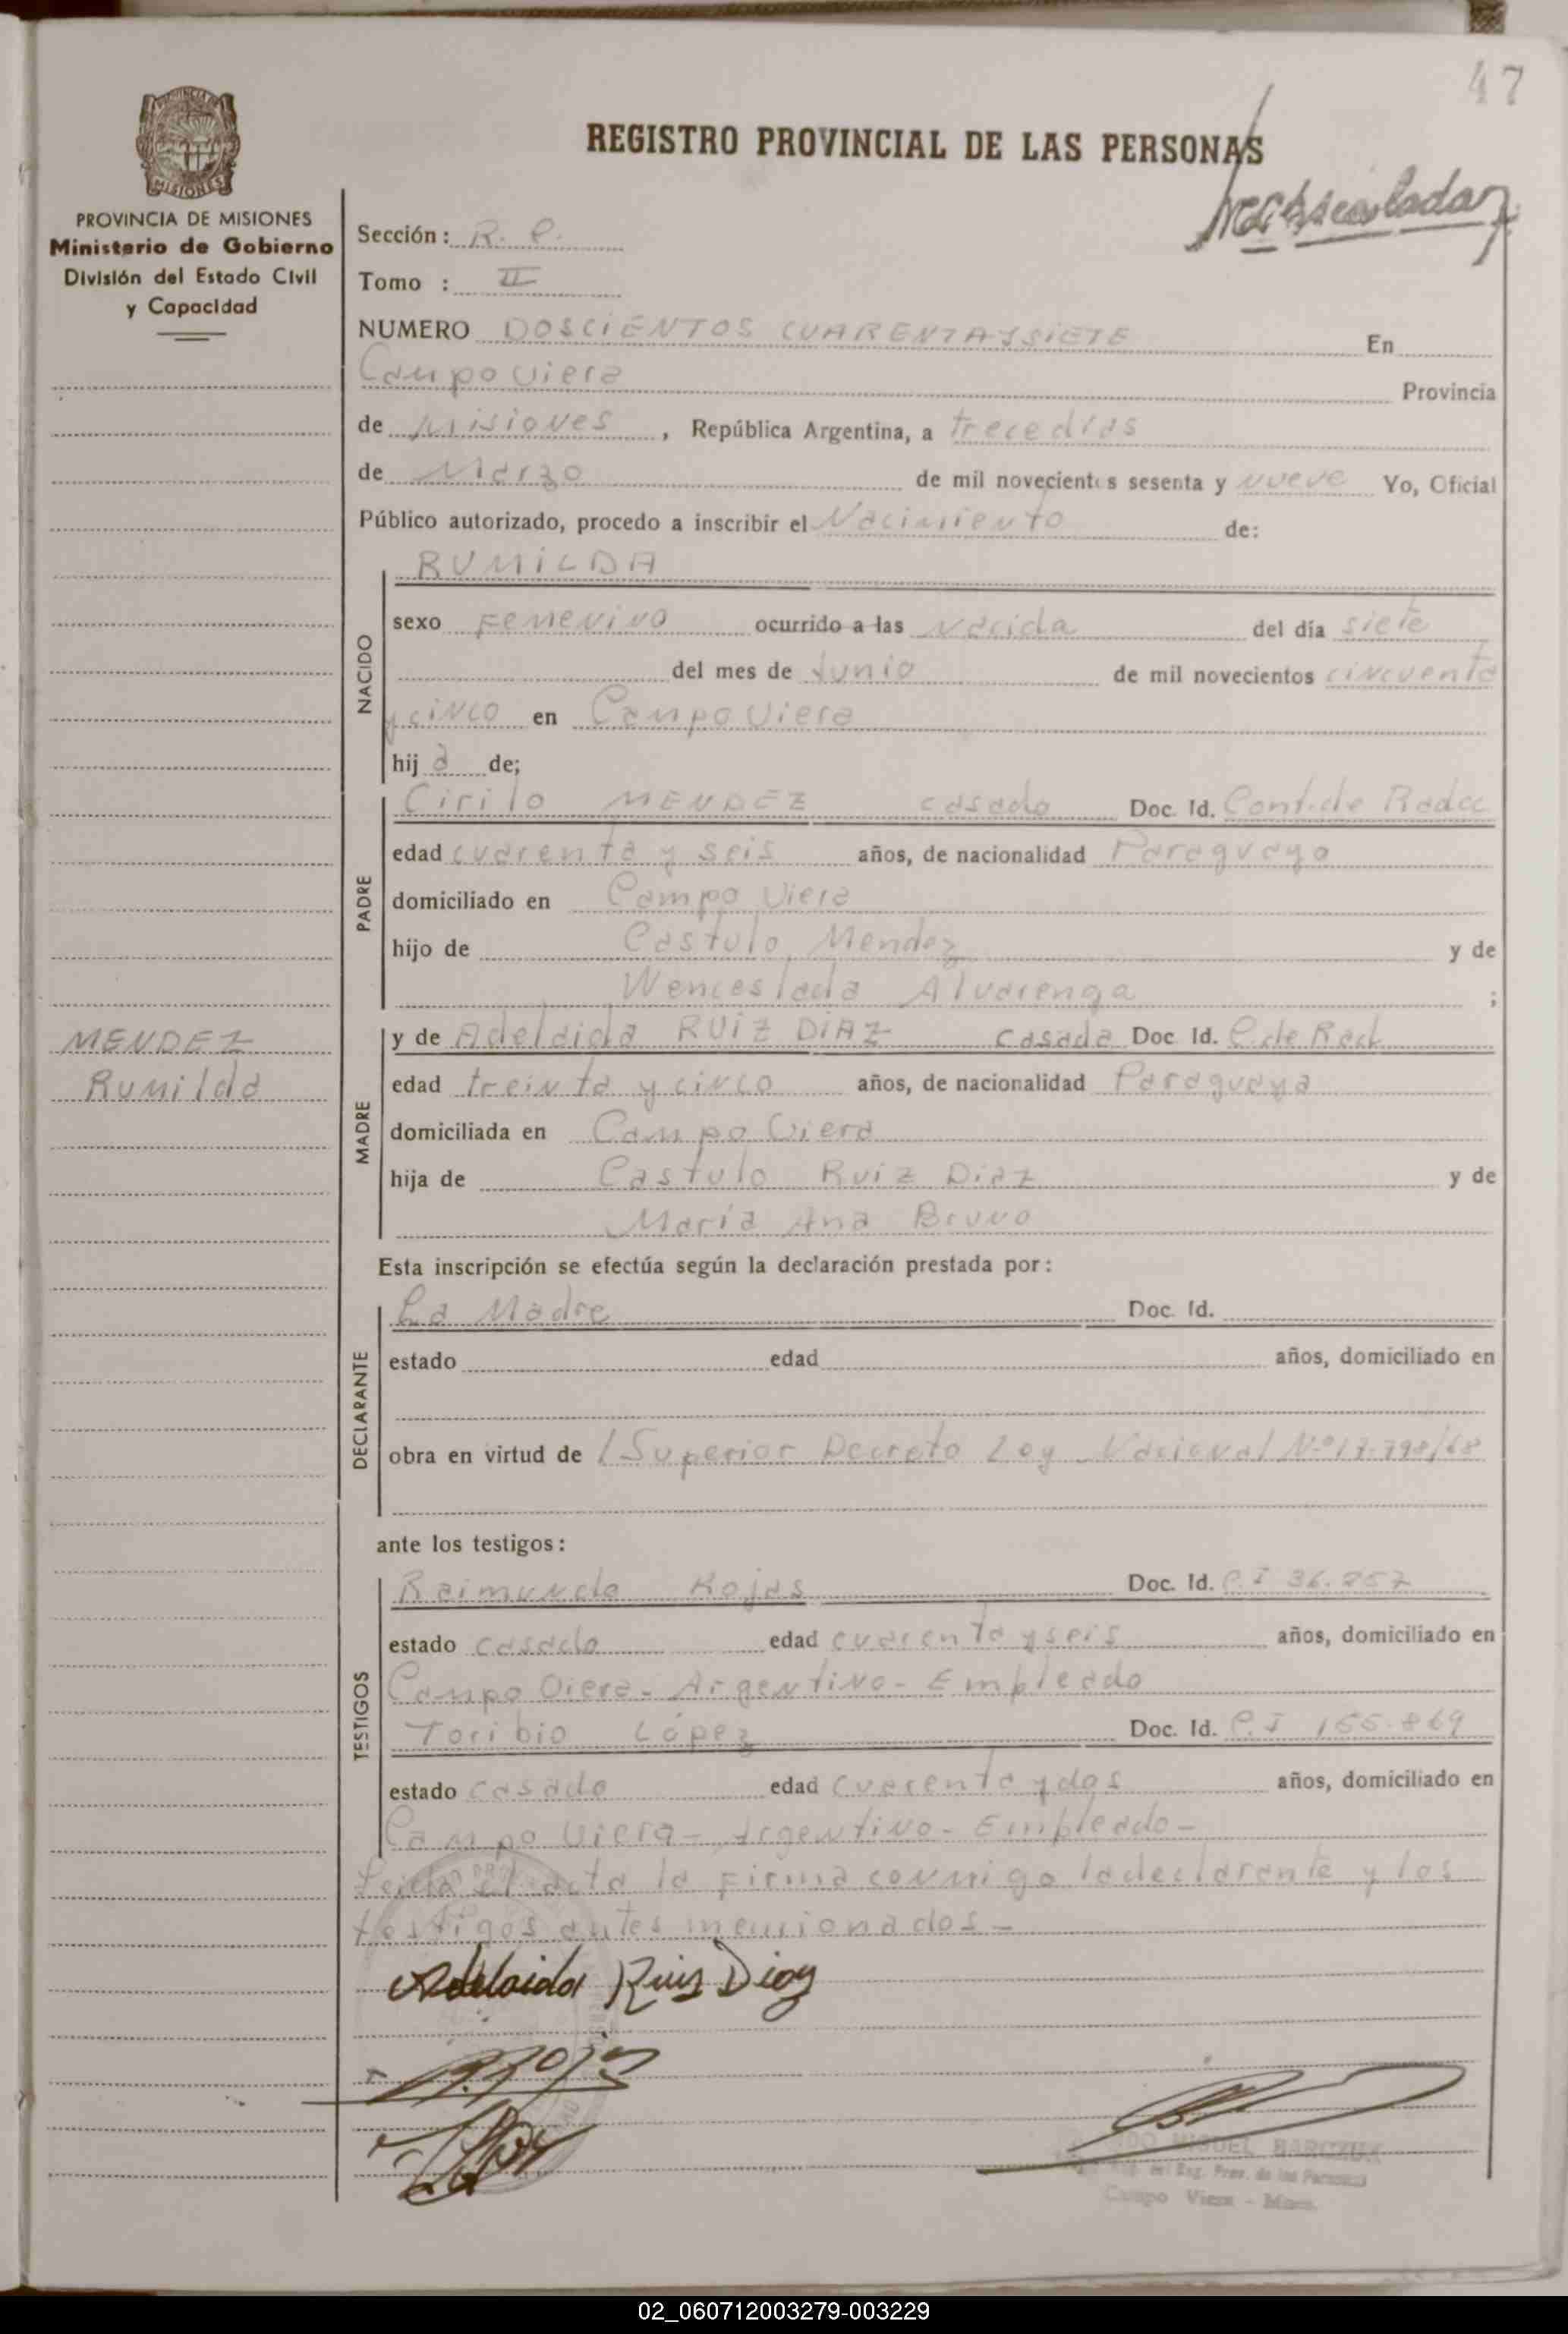 47
REGISTRO PROVINCIAL DE LAS PERSONAS
MISIONES
PROVINCIA DE MISIONES
Ministerio de Gobierno
División del Estado Civil
y Capacidad
Sección: R. P.
Tomo : II
NUMERO DOSCIENTOS CUARENTA Y SIETE En
Campo Viera Provincia
de Misiones, República Argentina, a trece días
de Marzo de mil novecientos sesenta y nueve Yo, Oficial
Público autorizado, procedo a inscribir el Nacimiento de:
NACIDO
RUMILDA
sexo Femenino ocurrido a las Nacida del día siete
del mes de Junio de mil novecientos cincuenta
y cinco en Campo Viera
hija de;
PADRE
Cirilo MENDEZ casado Doc. Id. Cont. de Radcc
edad cuarenta y seis años, de nacionalidad Paraguayo
domiciliado en Campo Viera
hijo de Castulo Mendez y de
Wenceslada Alvarenga ;
MENDEZ
Rumilda
MADRE
y de Adelaida RUIZ DIAZ casada Doc. Id. C. de Rad.
edad treinta y cinco años, de nacionalidad Paraguaya
domiciliada en Campo Viera
hija de Castulo Ruiz Diaz y de
María Ana Bruno
Esta inscripción se efectúa según la declaración prestada por:
DECLARANTE
La Madre Doc. Id.
estado edad años, domiciliado en
obra en virtud de /Superior Decreto Ley Nacional N.º 17.798/68
ante los testigos:
TESTIGOS
Raimundo Rojas Doc. Id. C.I 36.257
estado casado edad cuarenta y seis años, domiciliado en
Campo Viera - Argentino - Empleado
Toribio López Doc. Id. C.I 155.869
estado casado edad cuarenta y dos años, domiciliado en
Campo Viera - Argentino - Empleado -
Leida el acta la firma conmigo la declarante y los
testigos antes mencionados -
Adelaida Ruis Diaz
MIGUEL
Reg. Prov. de las Personas
Campo Viera - Mnes.
02_060712003279-003229